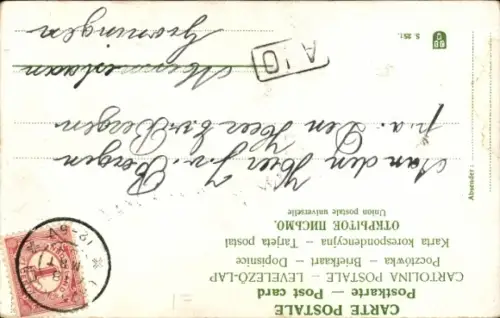 CARTE POSTALE
Postkarte – Post card
CARTOLINA POSTALE – LEVELEZŐ-LAP
Pocztówka – Briefkaart – Dopisnice
Karta korespondencyjna – Tarjeta postal
ОТКРЫТОЕ ПИСЬМО.
Union postale universelle
Aan den Heer J. v. Bergen
p/a. Den Heer E v. Bergen
Groningen
Absender: